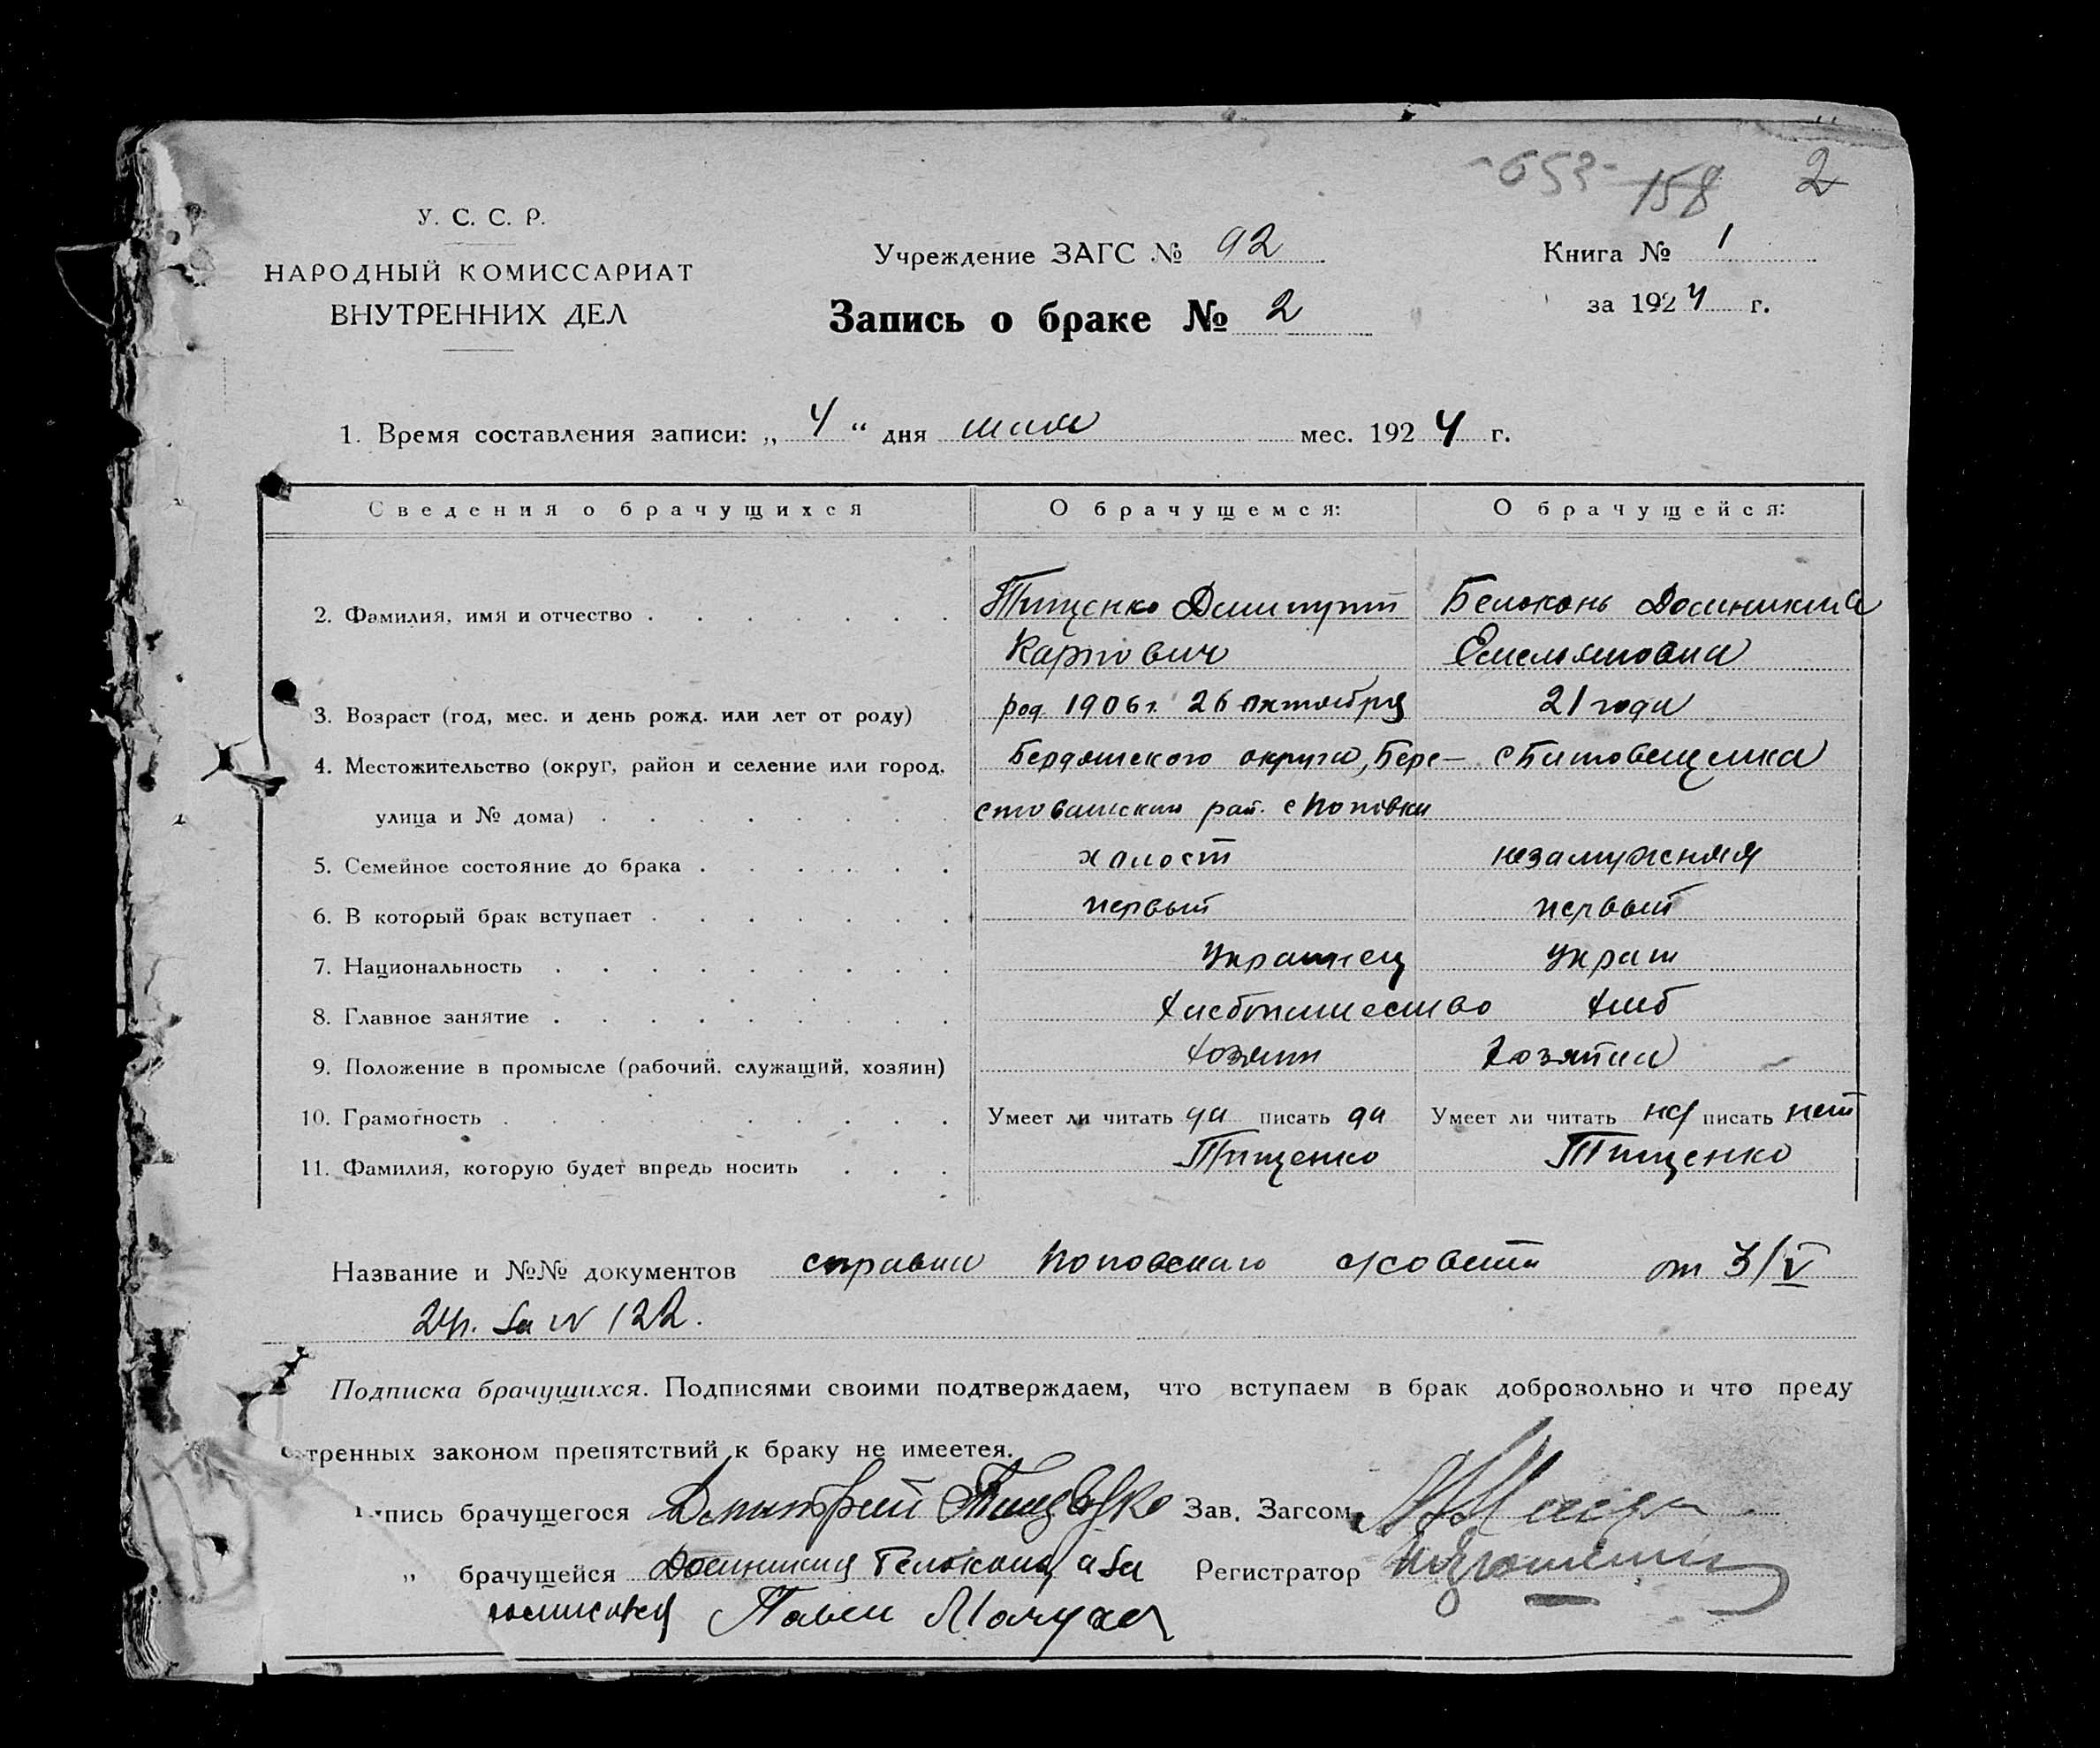 -653- 158 2
У. С. С. Р.
НАРОДНЫЙ КОМИССАРИАТ
ВНУТРЕННИХ ДЕЛ
Учреждение ЗАГС № 92
Книга № 1
Запись о браке № 2
за 1924 г.
1. Время составления записи: „ 4 “ дня мая мес. 1924 г.
Сведения о брачущихся О брачущемся: О брачущейся:
2. Фамилия, имя и отчество Тищенко Димитрий Белоконь Домникия
Карпович Емельяновна
3. Возраст (год, мес. и день рожд. или лет от роду) род 1906 г. 26 октября 21 года
4. Местожительство (округ, район и селение или город, Бердянского округа, Бере-
улица и № дома) стованский рай. с Поповки
5. Семейное состояние до брака холост незамужняя
6. В который брак вступает первый первый
7. Национальность Украинец Украин
8. Главное занятие Хлебопашество Хлеб
9. Положение в промысле (рабочий, служащий, хозяин) Хозяин Хозяйка
10. Грамотность Умеет ли читать да писать да Умеет ли читать писать нет
11. Фамилия, которую будет впредь носить Тищенко Тищенко
Название и №№ документов справки Поповскаго с/совета от 3/V
24г. за N 122.
Подписка брачущихся. Подписями своими подтверждаем, что вступаем в брак добровольно и что преду
тренных законом препятствий к браку не имеетея.
пись брачущегося Дмитрий Тищенко Зав. Загсом
„ брачущейся Домникия Белоконь а за Регистратор
росписался Павел Мачуха